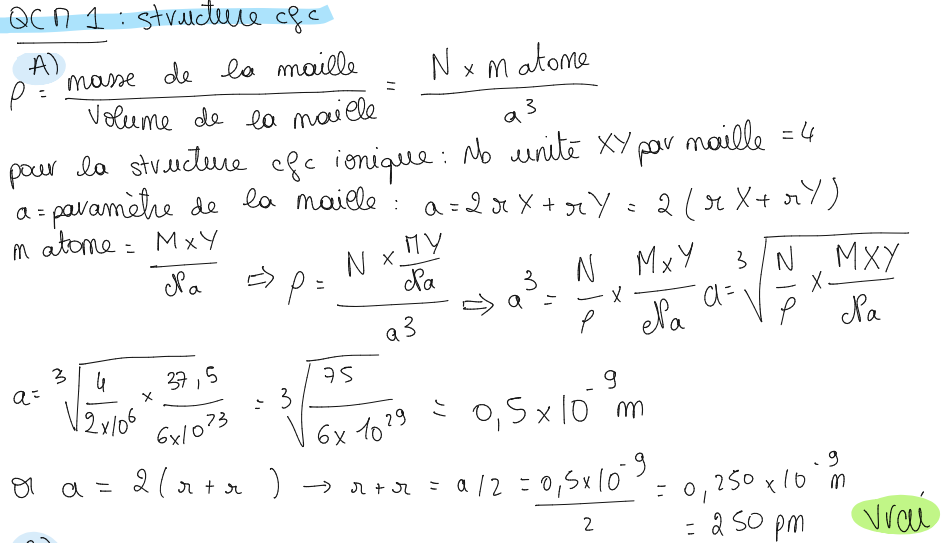 QCM 1 : structure cfc
A)
ρ = masse de la maille / Volume de la maille = N × m atome / a³
pour la structure cfc ionique : Nb unité XY par maille = 4
a = paramètre de la maille : a = 2 r X + r Y = 2 ( r X + r Y )
m atome = M x Y / Na ⇒ ρ = N × MY / Na / a³ ⇒ a³ = N / ρ × M x Y / Na a = ³√ N / ρ × M X Y / Na
a = ³√ 4 / 2 x 10⁶ × 37,5 / 6 x 10²³ = ³√ 75 / 6 x 10²⁹ = 0,5 x 10⁻⁹ m
or a = 2 ( r + r ) → r + r = a / 2 = 0,5 x 10⁻⁹ / 2 = 0,250 x 10⁻⁹ m
= 250 pm vrai